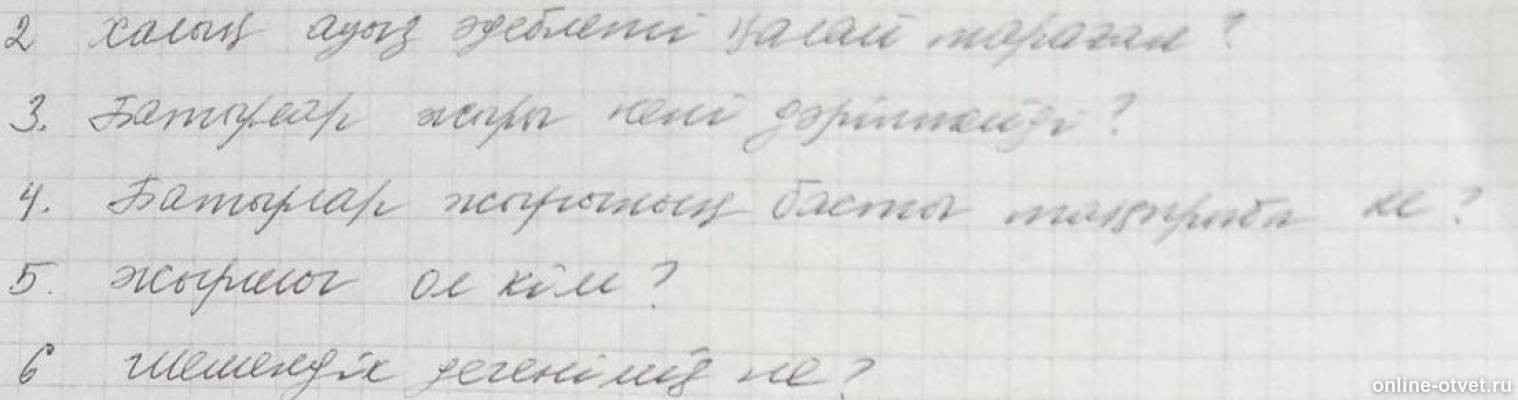 2 халық ауыз әдебиеті қалай тараған?
3. Батырлар жыры нені дәріптейді?
4. Батырлар жырының басты тақырыбы не?
5. жыршы ол кім?
6 шешендік дегеніміз не?
online-otvet.ru